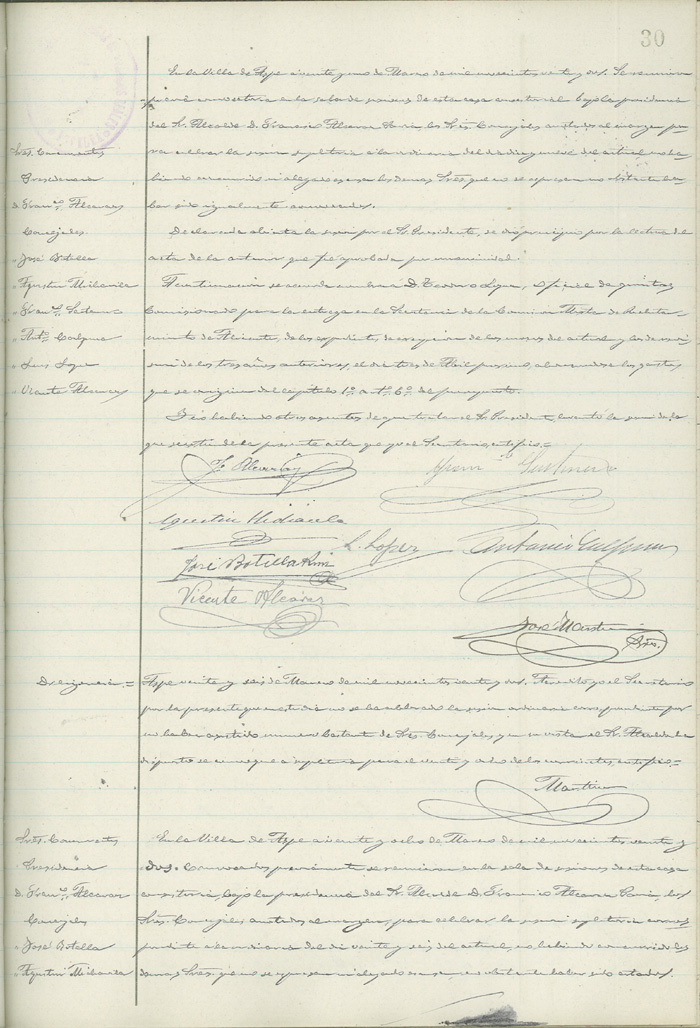 30
En la Villa de Aspe a veinte y uno de Marzo de mil novecientos veinte y dos. Se reunieron
previa convocatoria en la sala de sesiones de esta casa consistorial bajo la presidencia
del Sr. Alcalde D. Francisco Alcaraz los Sres. Concejales anotados al margen pa-
ra celebrar la sesión supletoria a la ordinaria del día diez y nueve del actual no ha-
biendo concurrido ni alegado excusa los demás Sres. que no se expresan no obstante ha-
ber sido igualmente convocados.
Sres. Concurrentes
Presidencia
D. Franco. Alcaraz
Concejales
" José Botella
" Agustín
" Franco.
" Anto.
" Luis
" Vicente Alcaraz
Declarada abierta la sesión por el Sr. Presidente, se dio principio por la lectura del
acta de la anterior que fue aprobada por unanimidad.
A continuación se acuerda nombrar a D. oficial de quintas
Comisionado para la entrega en la Secretaría de la Comisión Mixta de Recluta-
miento de Alicante, de los expedientes de excepción de los mozos del actual y los de revi-
sión de los tres años anteriores, el día tres de Abril próximo, abonándose los gastos
que se originen del capítulo 1º. artº. 6º. del presupuesto.
Y no habiendo otros asuntos de que tratar el Sr. Presidente, levantó la sesión de la
que se extiende la presente acta que yo el Secretario, certifico.=
F. Alcaraz
Agustín
José Botella
L. López
Antonio
Vicente Alcaraz
José Martínez
Srio.
Diligencia.= Aspe veinte y seis de Marzo de mil novecientos veinte y dos. Acredito yo el Secretario
por la presente que en este día no se ha celebrado la sesión ordinaria correspondiente por
no haber asistido número bastante de Sres. Concejales, y en su vista el Sr. Alcalde ha
dispuesto se convoque a supletoria para el veinte y ocho de los corrientes, certifico=
Martínez
Sres. Concurrentes
Presidencia
D. Franco. Alcaraz
Concejales
" José Botella
" Agustín
En la Villa de Aspe a veinte y ocho de Marzo de mil novecientos veinte y
dos. Convocados previamente se reunieron en la sala de sesiones de esta casa
consistorial, bajo la presidencia del Sr. Alcalde D. Francisco Alcaraz los
Sres. Concejales anotados al margen, para celebrar la sesión supletoria corres-
pondiente a la ordinaria del día veinte y seis del actual, no habiendo concurrido los
demás Sres. que no se expresan ni alegado excusa, no obstante haber sido citados.